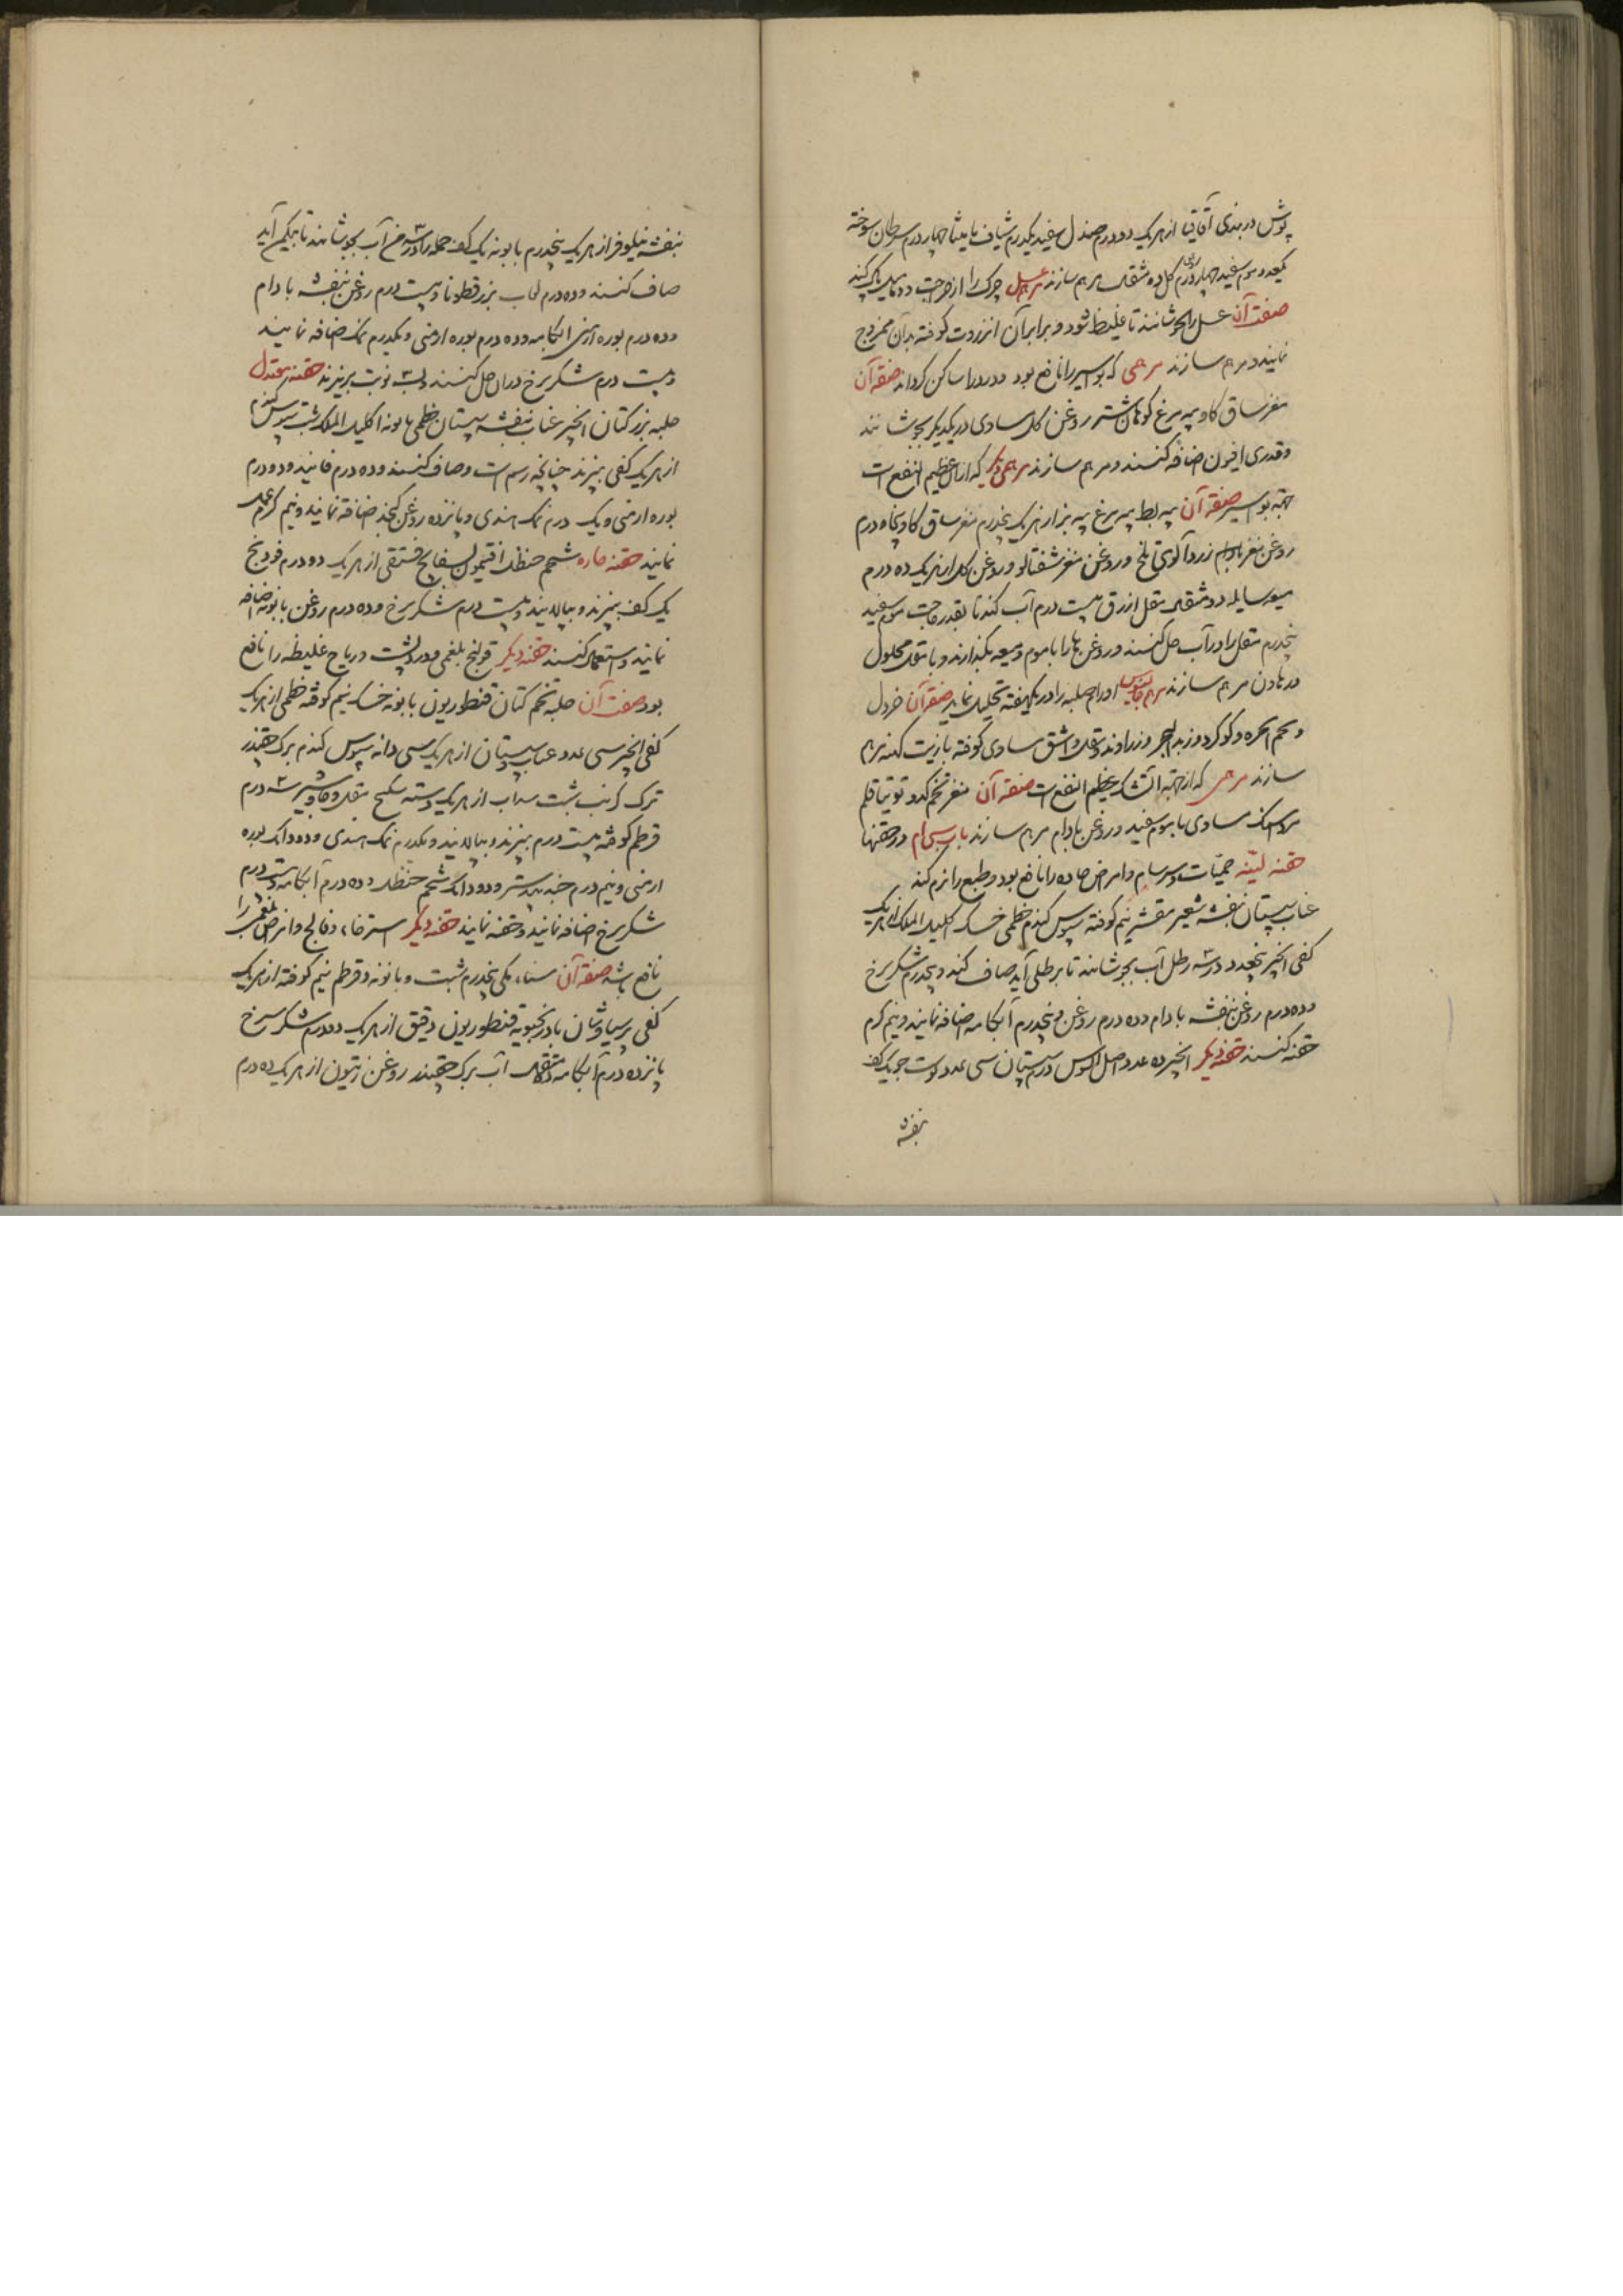 پوش دربندی آقاقیا از هریک دو درم صندل سفید یکدرم شیاف مامیثا چهار درم سرطان سوخته
یکعدد موم سفید چهار درم روغن گل ده مثقال مرهم سازند مرهم عسل چرک را از جراحت و دمامیل پاک کند
صفت آن عسل را بجوشانند تا غلیظ شود و برابر آن انزروت کوفته بدان ممزوج
نمایند و مرهم سازند مرهمی که بواسیر را نافع بود و درد را ساکن گرداند صفة آن
مغز ساق گاو پیه مرغ کوهان شتر روغن گل مساوی در یکدیگر بجوشانند
و قدری افیون اضافه کنند و مرهم سازند مرهمی دیگر که از آن عظیم النفع است
جهة بواسیر صفة آن پیه بط پیه مرغ پیه بز از هریک پنجدرم مغز ساق گاو پنجاه درم
روغن مغز بادام زردآلوی تلخ و روغن مغز شفتالو و روغن گل از هریک ده درم
میعه سایله دو مثقال مقل ازرق بیست درم آب گندنا بقدر حاجت موم سفید
پنجدرم مقل را در آب حل کنند و روغن ها را با موم و میعه بگدازند و با مقل محلول
در هاون مرهم سازند مرهم جالینوس اورام صلبه را در یکهفته تحلیل نماید صفة آن خردل
و تخم انجره و گوگرد و زبد البحر و زراوند و مقل و اشق مساوی کوفته با زیت کهنه مرهم
سازند مرهمی که از جهة آتشک عظیم النفع است صفة آن مغز تخم کدو توتیا قلم
مرداسنک مساوی با موم سفید و روغن بادام مرهم سازند باب سی ام در حقنها
حقنه لینه حمیات و سرسام و امراض حاده را نافع بود و طبع را نرم کند
عناب سپستان بنفشه شعیر مقشر نیم کوفته سپوس گندم خطمی خسک اکلیل الملک از هریک
کفی انجیر پنجعدد در سه رطل آب بجوشانند تا برطلی آید صاف کنند و پنجدرم شکر سرخ
و ده درم روغن بنفشه بادام و ده درم روغن و پنجدرم آبکامه اضافه نمایند و نیم گرم
حقنه کنند حقنه دیگر انجیر ده عدد اصل السوس درم سپستان سی عدد پوست جو یک کف
بنفشه
بنفشه نیلوفر از هریک پنجدرم بابونه یک کف جمله را در سه من آب بجوشانند تا بیکمن آید
صاف کنند و ده درم لعاب بزر قطونا و بیست درم روغن بنفشه بادام
و ده درم بوره ارمنی آبکامه و ده درم بوره ارمنی و یکدرم نمک اضافه نمایند
و بیست درم شکر سرخ در آن حل کنند و به سه نوبت بریزند حقنه معتدل
حلبه بزر کتان انجیر عناب بنفشه سپستان خطمی بابونه اکلیل الملک شبت سپوس گندم
از هریک کفی بپزند چنانچه رسم است و صاف کنند و ده درم فانید و دو درم
بوره ارمنی و یک درم نمک هندی و پانزده روغن کنجد اضافه نمایند و نیم گرم عمل
نمایند حقنه حاره شحم حنظل افتیمون بسفایج فستقی از هریک دو درم فودنج
یک کف بپزند و بپالایند و بیست درم شکر سرخ و ده درم روغن بابونه اضافه
نمایند و استعمال کنند حقنه دیگر قولنج بلغمی و درد پشت و ریاح غلیظه را نافع
بود صفت آن حلبه تخم کتان قنطوریون بابونه خسک نیم کوفته خطمی از هریک
کفی انجیر سی عدد عناب سپستان از هریک سی دانه سپوس گندم برک چقندر
ترک کرنب شبت سداب از هریک دسته سکبینج مقل و جاوشیر سه درم
قرطم کوفته بیست درم بپزند و بپالایند و یکدرم نمک هندی و دو دانک بوره
ارمنی و نیم درم جندبیدستر و دو دانک شحم حنظل و ده درم آبکامه و بیست درم
شکر سرخ اضافه نمایند و حقنه نمایند حقنه دیگر استرخاء و فالج و امراض بلغمی را
نافع باشد صفة آن سناء مکی پنجدرم شبت و بابونه و قرطم نیم کوفته از هریک
کفی پرسیاوشان بادرنجبویه قنطوریون دقیق از هریک دو درم شکر سرخ
پانزده درم آبکامه مثقال آب برک چقندر روغن زیتون از هریک ده درم